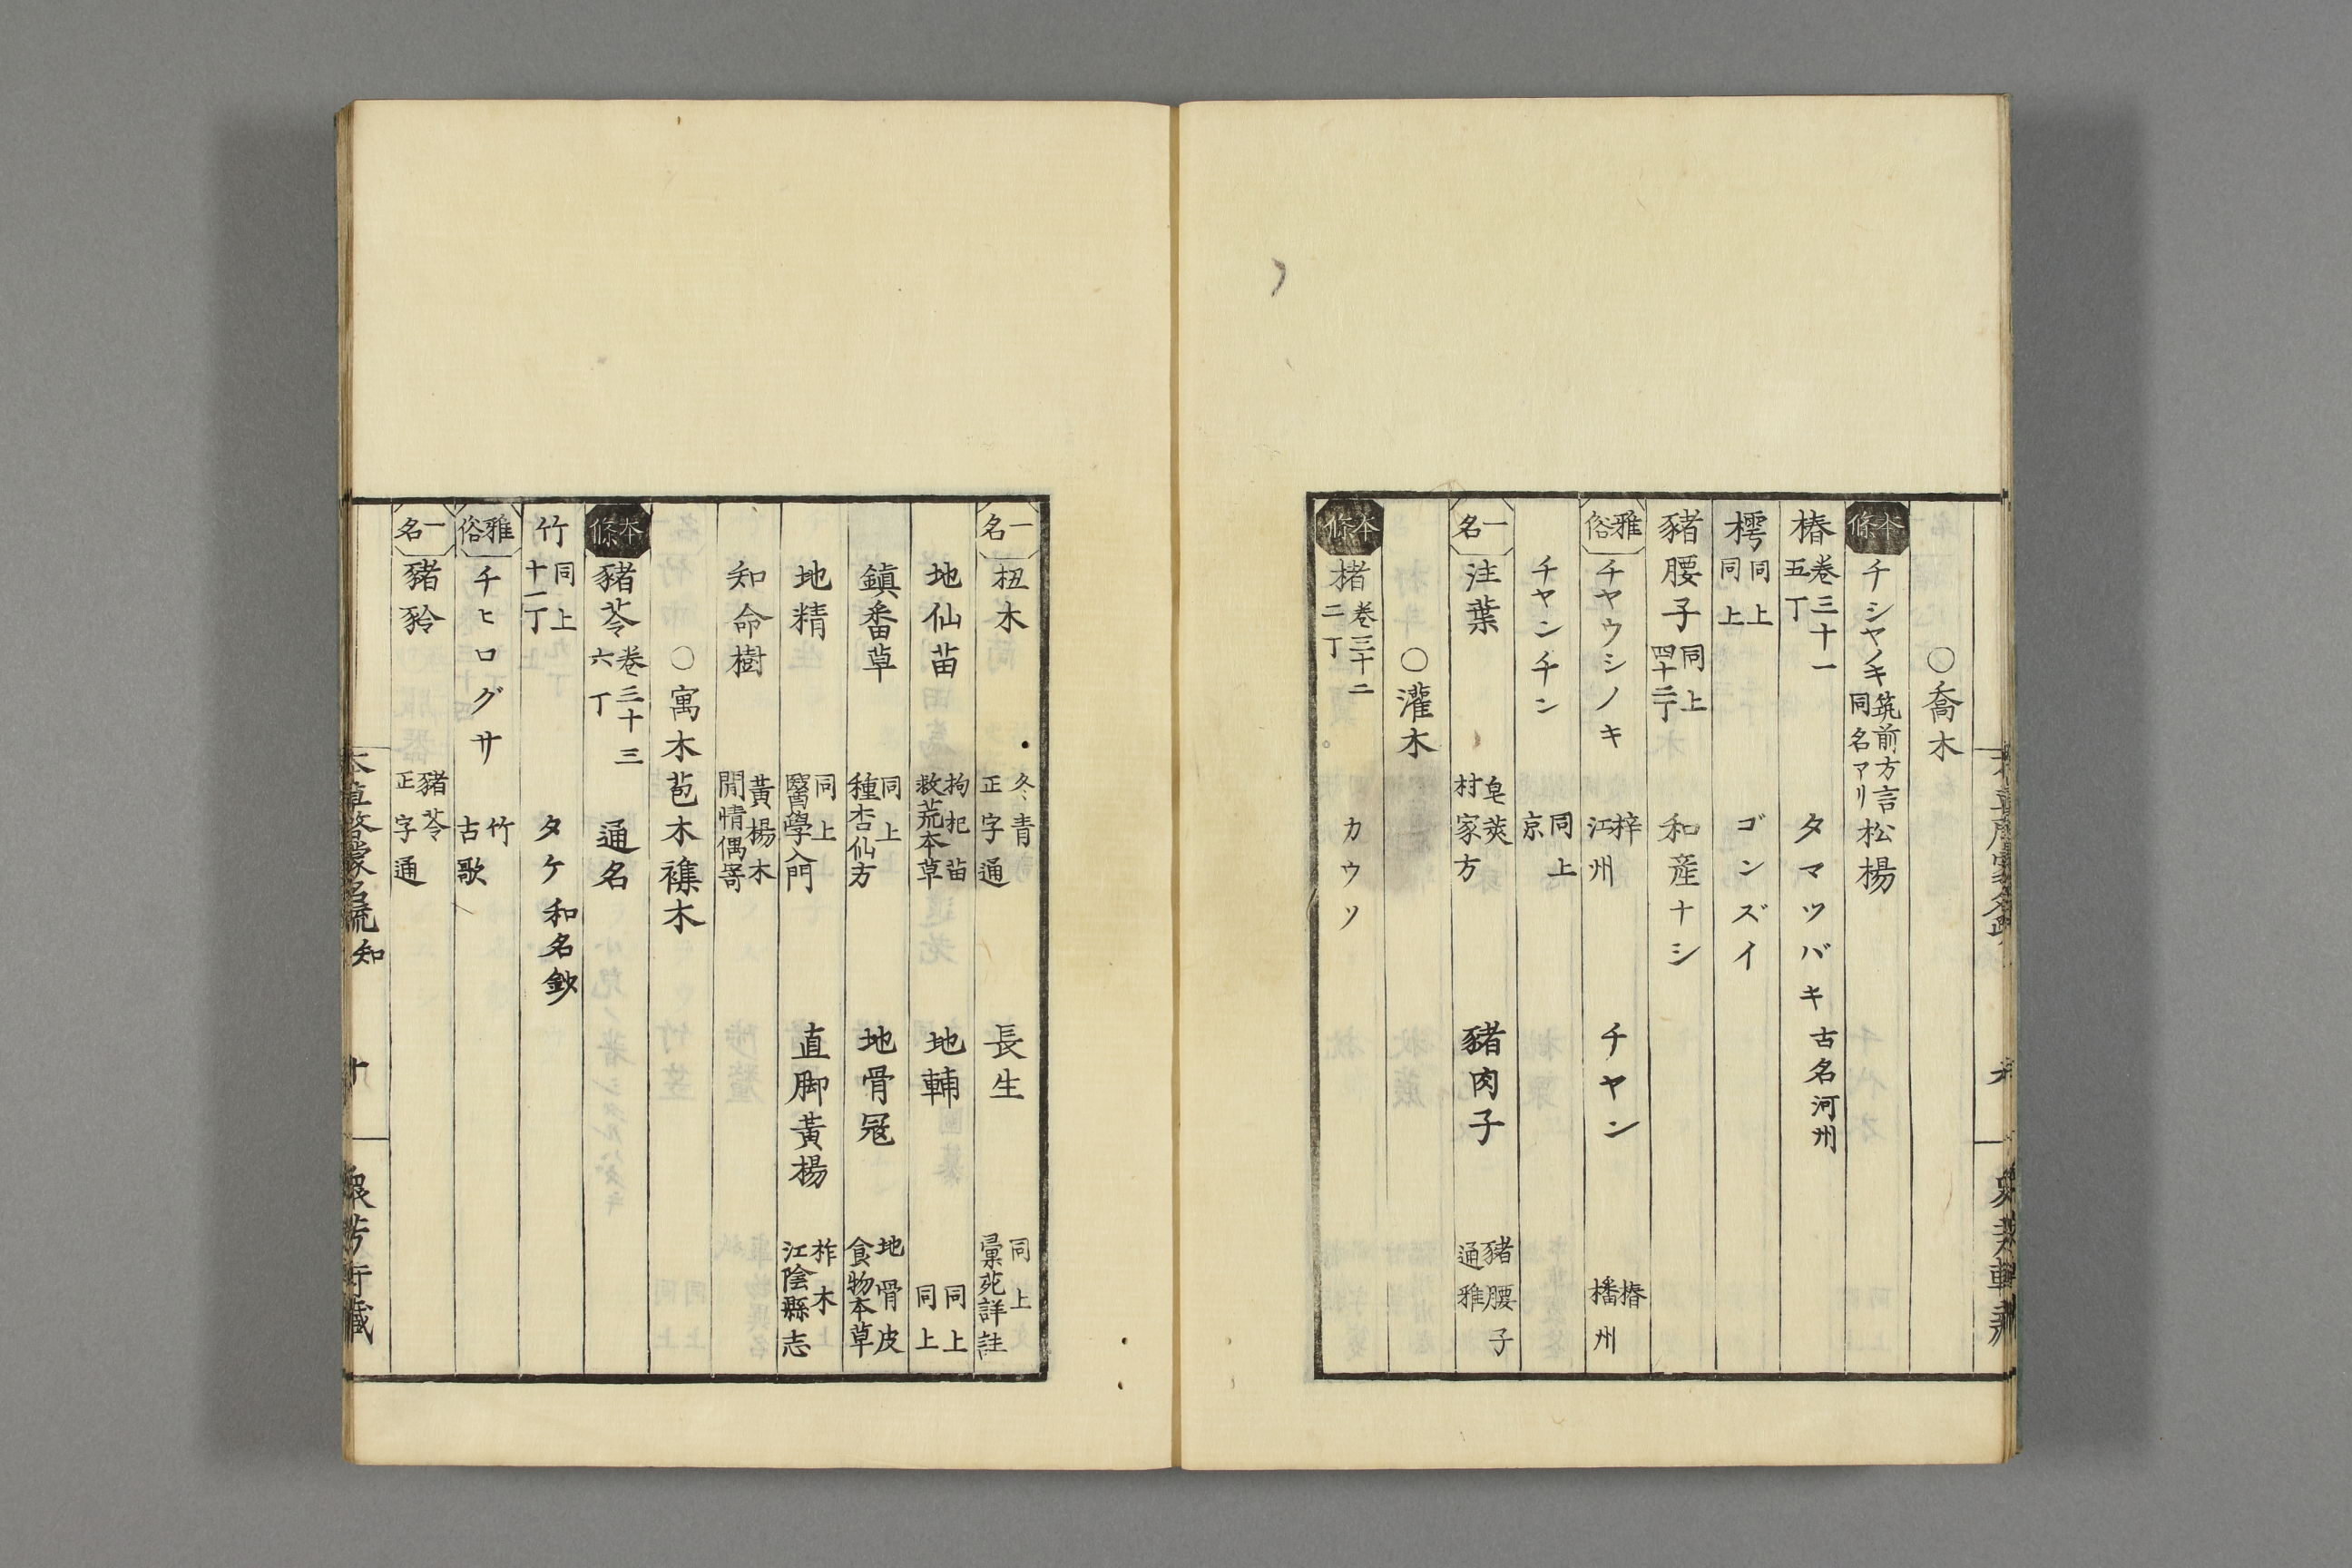 ○喬木
本條 チシヤノキ 筑前方言同名アリ 松楊
椿 卷三十一 五丁 タマツバキ 古名河州
樗 同上 同上 ゴンズイ
豬腰子 同上 四十二丁 和産ナシ
雅俗 チヤウシノキ 梓 江州 チヤン 椿 播州
チヤンチン 同上 京
一名 注葉 皂莢 村家方 豬肉子 豬腰子 通雅
○灌木
本條 楮 卷三十二 二丁 カウソ
一名 杻木 冬青 正字通 長生 同上 彙苑詳註
地仙苗 枸杞苗 救荒本草 地輔 同上 同上
鎮番草 同上 種杏仙方 地骨冠 地骨皮 食物本草
地精 同上 醫學入門 直脚黃楊 柞木 江陰縣志
知命樹 黃楊木 閒情偶寄
○寓木苞木襍木
本條 豬苓 卷三十三 六丁 通名
竹 同上 十一丁 タケ 和名鈔
雅俗 チヒログサ 竹 古歌
一名 豬豨 豬苓 正字通
本草啓蒙名疏 知 十 衆芳軒藏